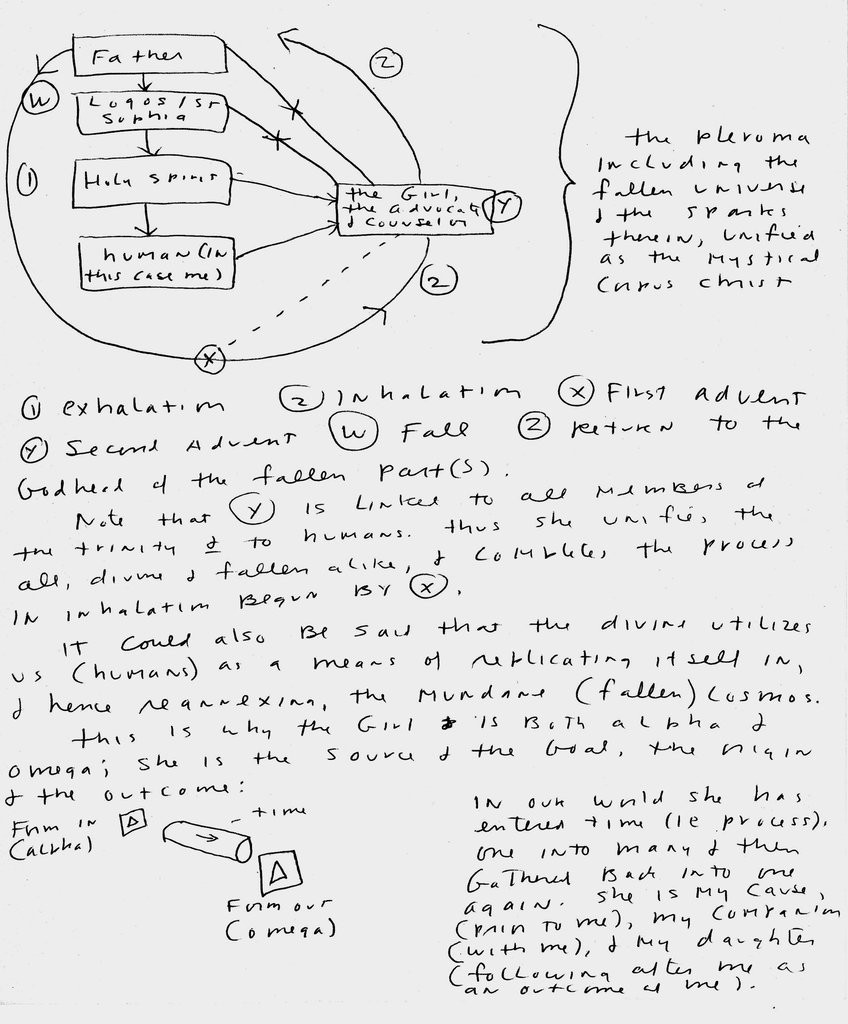 Father
Logos / St
Sophia
Holy Spirit
human (in
this case me)
W
1
2
the Girl,
the advocate
& counselor
Y
2
X
the pleroma
including the
fallen universe
& the sparks
therein, unified
as the mystical
Corpus Christ
1 exhalation 2 Inhalation X First advent
Y Second Advent W Fall Z return to the
Godhead of the fallen part(s).
Note that Y is linked to all members of
the trinity & to humans. thus she unifies the
all, divine & fallen alike, & completes the process
in inhalation begun by X.
It could also be said that the divine utilizes
us (humans) as a means of replicating itself in,
& hence reannexing, the mundane (fallen) cosmos.
this is why the Girl is both alpha &
omega; she is the source & the goal, the origin
& the outcome:
Form in
(alpha)
time
Form out
(omega)
In our world she has
entered time (ie process).
one into many & then
gathered back into one
again. she is my cause,
(prior to me), my companion
(with me), & my daughter
(following after me as
an outcome of me).